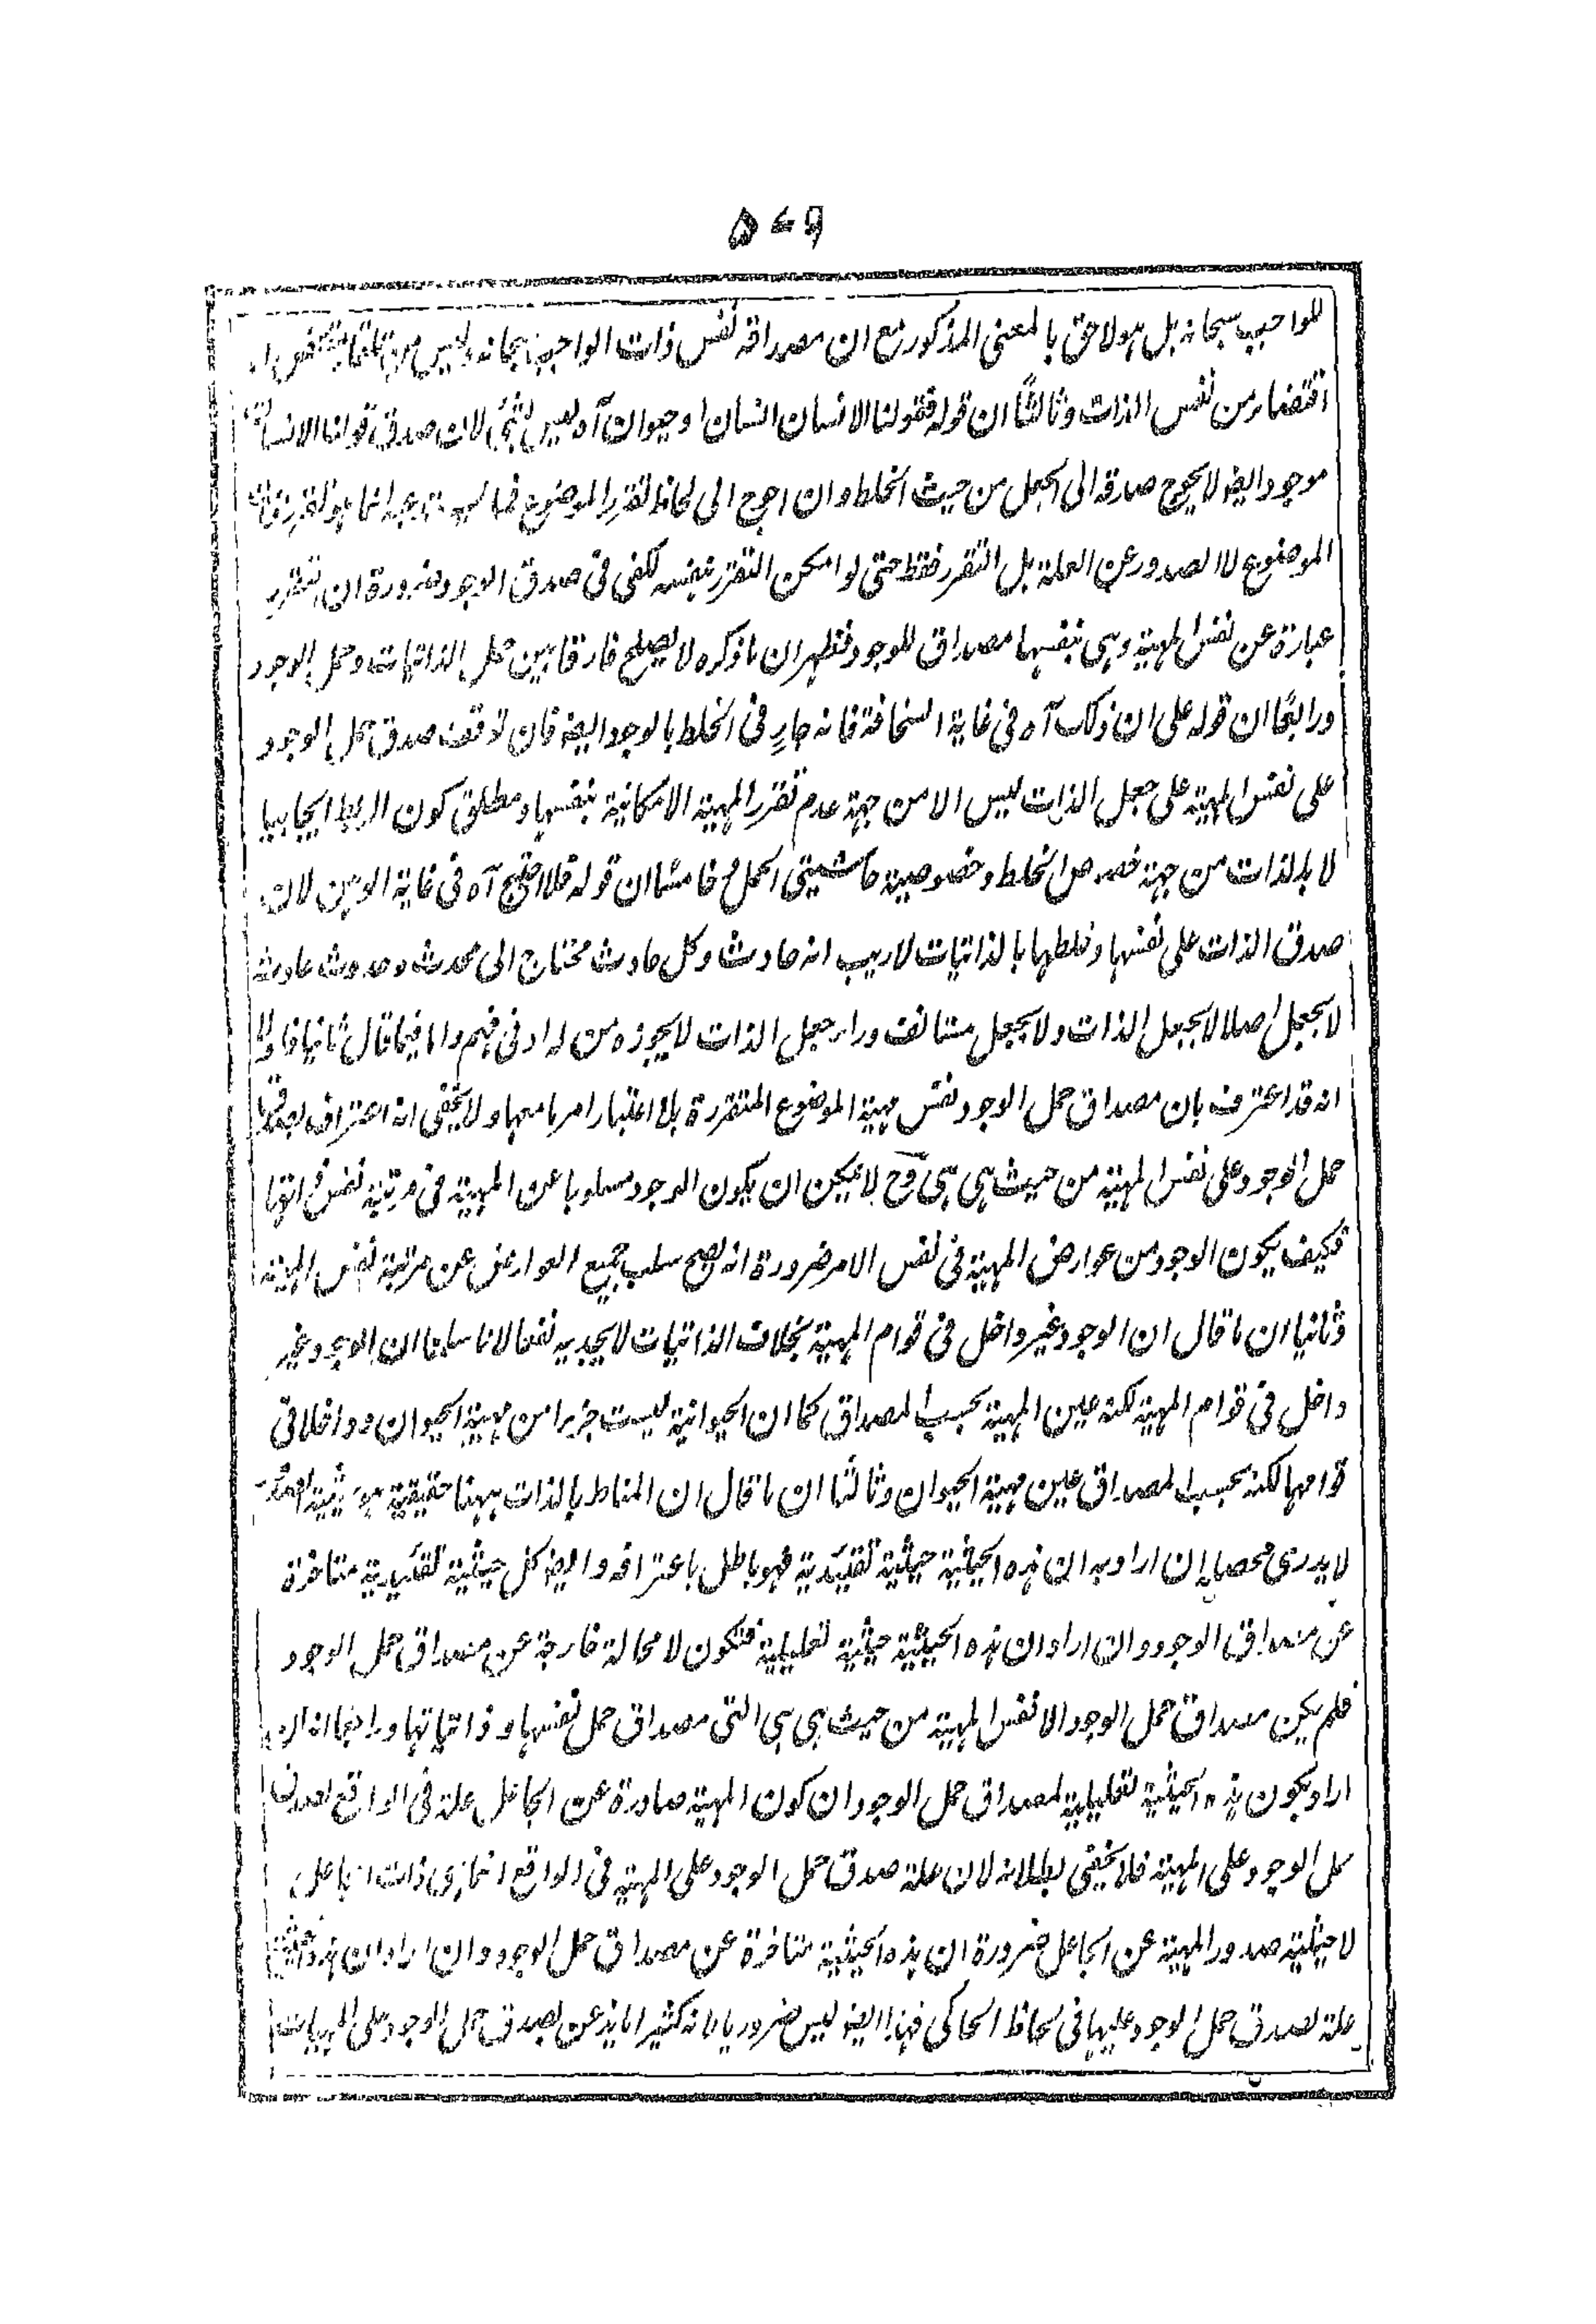 ۵۷۹
للواجب سبحانه بل هو لاحق بالمعنى المذكور مع ان مصداقه نفس ذات الواجب سبحانه وليس من تلقاء
اقتضاء من نفس الذات وثالثًا ان قوله فقولنا الانسان انسان او حيوان آه ليس بشئ لان صدق قولنا الانسان
موجود ايضا لا يحوج صدقه الى الجعل من حيث الخلط وان احوج الى لحاظ تقرر الموضوع فما يستدعيه انما هو تقرر ذات
الموضوع لا الصدور عن العلة بل التقرر فقط حتى لو امكن التقرر بنفسه لكفى فى صدق الوجود ضرورة ان التقرر
عبارة عن نفس المهية وهى بنفسها مصداق للوجود فظهر ان ما ذكره لا يصلح فارقا بين حمل الذاتيات وحمل الوجود
ورابعًا ان قوله على ان ذلك آه فى غاية السخافة فانه جارٍ فى الخلط بالوجود ايضا فان توقف صدق حمل الوجود
على نفس المهية على جعل الذات ليس الا من جهة عدم تقرر المهية الامكانية بنفسها ومطلق كون الربط ايجابيا
لا بالذات من جهة خصوص الخلط وخصوصية حاشيتى الحمل وخامسًا ان قوله فلا احتيج آه فى غاية الوهن لان
صدق الذات على نفسها وخلطها بالذاتيات لا ريب انه حادث وكل حادث محتاج الى محدث وحدوث حادث
لا بجعل اصلا لا بجعل الذات ولا بجعل مستانف وراء جعل الذات لا يجوزه من له ادنى فهم واما فيما قال ثانيا فاولا
انه قد اعترف بان مصداق حمل الوجود نفس مهية الموضوع المتقررة بلا اعتبار امر ما معها ولا يخفى انه اعتراف بصدق
حمل الوجود على نفس المهية من حيث هى هى وح لا يمكن ان يكون الوجود مسلوبا عن المهية فى مرتبة نفس ذاتها
فكيف يكون الوجود من عوارض المهية فى نفس الامر ضرورة انه يصح سلب جميع العوارض عن مرتبة نفس المهية
وثانيا ان ما قال ان الوجود غير داخل فى قوام المهية بخلاف الذاتيات لا يجديه نفعا لانا سلمنا ان الوجود غير
داخل فى قوام المهية لكنه عين المهية بحسب المصداق كما ان الحيوانية ليست جزءا من مهية الحيوان ودواخلا فى
قوامها لكنه بحسب المصداق عين مهية الحيوان وثالثا ان ما قال ان المناط بالذات ههنا حقيقية هو حيثية
لا يدرى محصله ان اراد به ان هذه الحيثية حيثية تقييدية فهو باطل باعترافه وايضا كل حيثية تقييدية متاخرة
عن مصداق الوجود وان اراد ان هذه الحيثية حيثية تعليلية فتكون لا محالة خارجة عن مصداق حمل الوجود
فلم يكن مصداق حمل الوجود الا نفس المهية من حيث هى هى التى مصداق حمل نفسها وذاتياتها ورابعا انه ان
اراد بكون هذه الحيثية تعليلية لمصداق حمل الوجود ان كون المهية صادرة عن الجاعل علة فى الواقع لصدق
حمل الوجود على المهية فلا يخفى بطلانه لان علة صدق حمل الوجود على المهية فى الواقع انما هى ذات الجاعل
لا حيثية صدور المهية عن الجاعل ضرورة ان هذه الحيثية متاخرة عن مصداق حمل الوجود وان اراد ان هذه الحيثية
علة لصدق حمل الوجود عليها فى لحاظ الحاكى فهذا ايضا ليس ضروريا لانه كثيرا ما يذعن بصدق حمل الوجود على المهيات